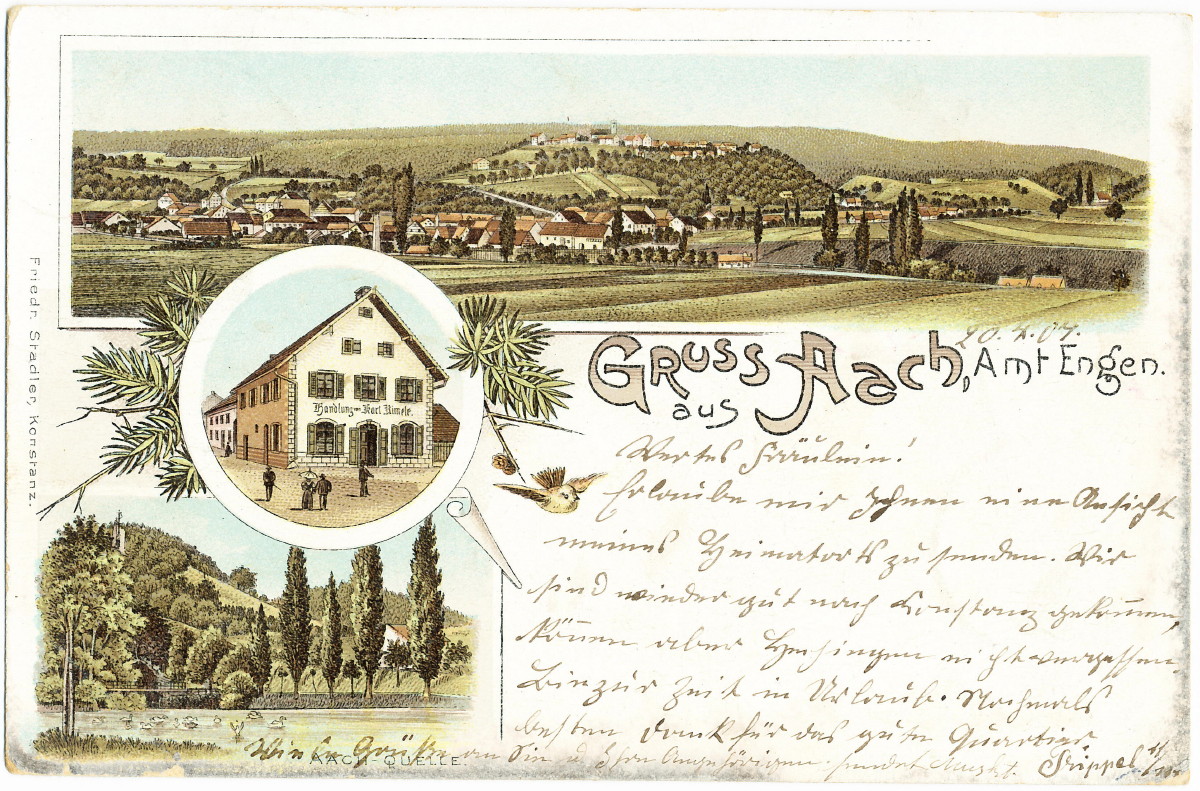 Friedr. Stadler, Konstanz.
Handlung von Karl Rimele.
GRUSS
aus
Aach, Amt Engen.
Wertes Fräulein!
Erlaube mir Ihnen eine Ansicht
meines Heimatorts zu senden. Wir
sind wieder gut nach Konstanz gekommen,
können aber Hechingen nicht vergessen
Bin zur Zeit in Urlaub. Nochmals
besten Dank für das gute Quartier.
Viele Grüße an Sie u. Ihre Angehörigen sendet
AACH-QUELLE.